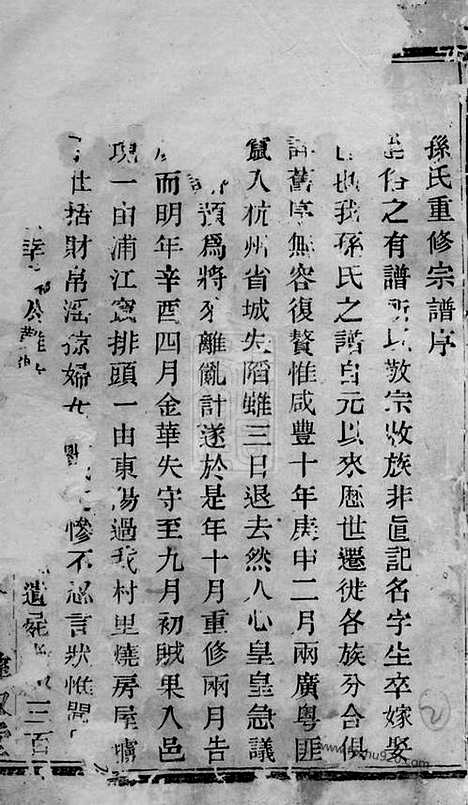 孫氏重修宗譜序
俗之有譜所以敦宗收族非眞記名字生卒嫁娶
也我孫氏之譜自元以來歷世遷徙各族分合俱
詳舊序無容復贅惟咸豐十年庚申二月兩廣粵匪
竄入杭州省城失陷雖三日退去然人心皇皇急議
預爲將來離亂計遂於是年十月重修兩月告
而明年辛酉四月金華失守至九月初賊果入邑
現一由浦江竄排頭一由東陽過我村里燒房屋擄
括財帛淫掠婦女慘不忍言狀惟聞
遺 三百
2